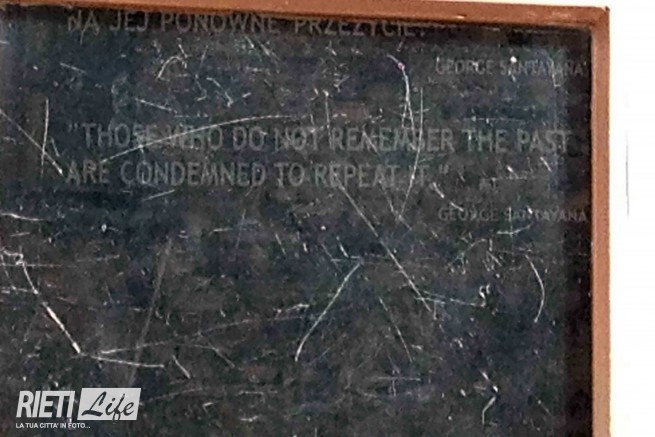 NA JEJ PONOWNE PRZEŻYCIE."
GEORGE SANTAYANA
"THOSE WHO DO NOT REMEMBER THE PAST
ARE CONDEMNED TO REPEAT IT."
GEORGE SANTAYANA
RIETI Life
LA TUA CITTA' IN FOTO...